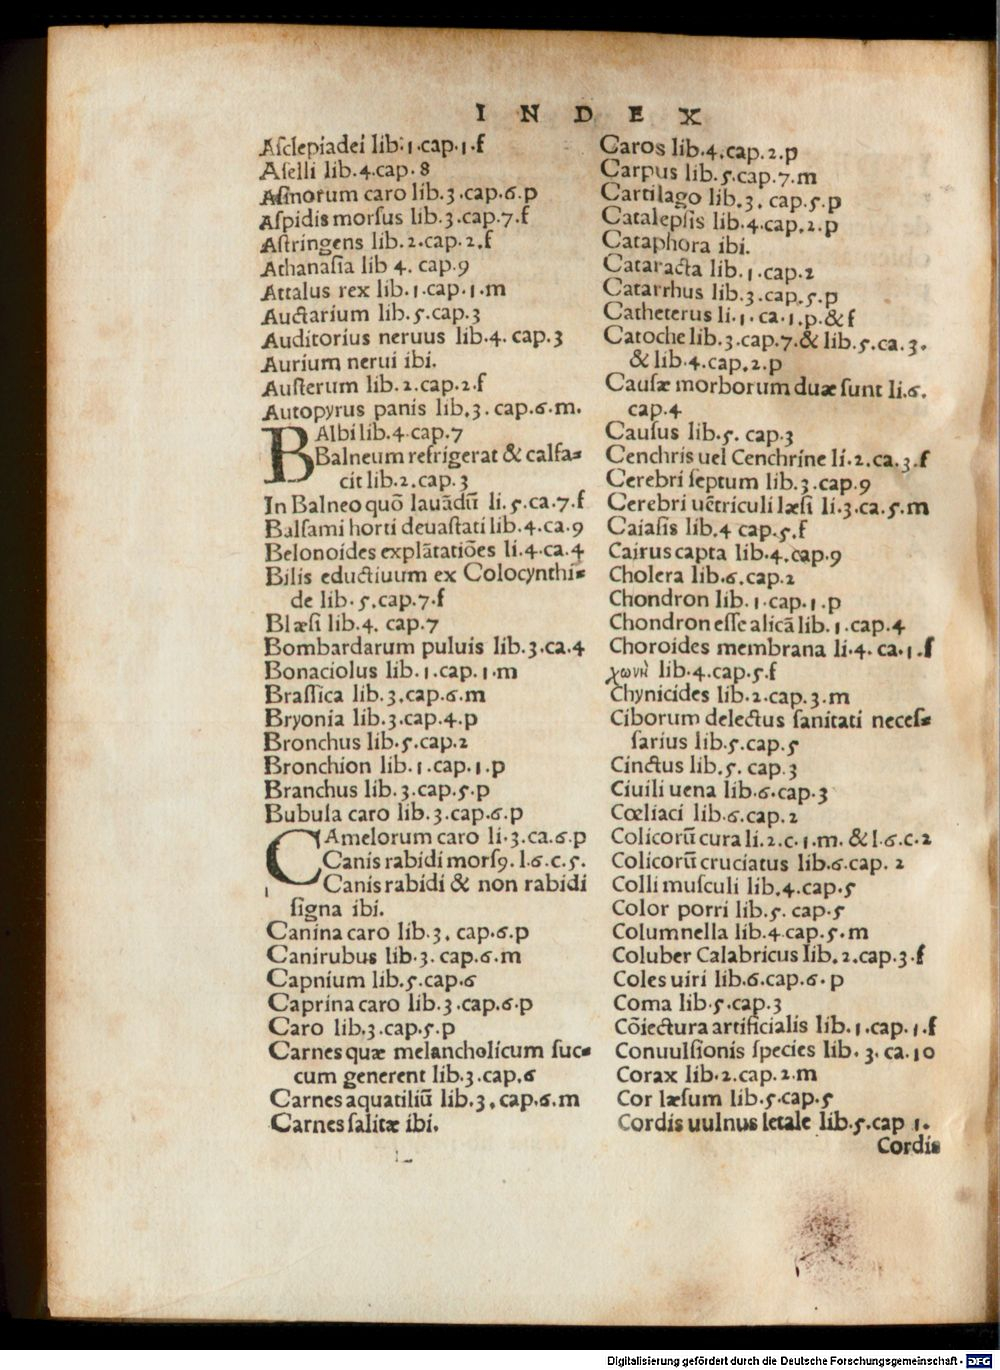 INDEX
Aſclepiadei lib.1.cap.1.f
Aſelli lib.4.cap.8
Aſinorum caro lib.3.cap.6.p
Aſpidis morſus lib.3.cap.7.f
Aſtringens lib.2.cap.2.f
Athanaſia lib 4. cap.9
Attalus rex lib.1.cap.1.m
Auctarium lib.5.cap.3
Auditorius neruus lib.4. cap.3
Aurium nerui ibi.
Auſterum lib.2.cap.2.f
Autopyrus panis lib.3.cap.6.m.
BAlbi lib.4.cap.7
Balneum refrigerat & calfa⸗
cit lib.2.cap.3
In Balneo quõ lauãdũ li.5.ca.7.f
Balſami horti deuaſtati lib.4.ca.9
Belonoides explãtatiões li.4.ca.4
Bilis eductiuum ex Colocynthi⸗
de lib.5.cap.7.f
Blæſi lib.4. cap.7
Bombardarum puluis lib.3.ca.4
Bonaciolus lib.1.cap.1.m
Braſſica lib.3.cap.6.m
Bryonia lib.3.cap.4.p
Bronchus lib.5.cap.2
Bronchion lib.1.cap.1.p
Branchus lib.3.cap.5.p
Bubula caro lib.3.cap.6.p
CAmelorum caro li.3.ca.6.p
Canis rabidi morſꝰ. l.6.c.5.
Canis rabidi & non rabidi
ſigna ibi.
Canina caro lib.3. cap.6.p
Canirubus lib.3. cap.6.m
Capnium lib.5.cap.6
Caprina caro lib.3.cap.6.p
Caro lib.3.cap.5.p
Carnes quæ melancholicum ſuc⸗
cum generent lib.3.cap.6
Carnes aquatiliũ lib.3.cap.6.m
Carnes ſalitæ ibi.
Caros lib.4.cap.2.p
Carpus lib.5.cap.7.m
Cartilago lib.3. cap.5.p
Catalepſis lib.4.cap.2.p
Cataphora ibi.
Cataracta lib.1.cap.2
Catarrhus lib.3.cap.5.p
Catheterus li.1.ca.1.p.& f
Catoche lib.3.cap.7.& lib.5.ca.3.
& lib.4.cap.2.p
Cauſæ morborum duæ ſunt li.6.
cap.4
Cauſus lib.5. cap.3
Cenchris uel Cenchrine li.2.ca.3.f
Cerebri ſeptum lib.3.cap.9
Cerebri uẽtriculi læſi li.3.ca.5.m
Caiaſis lib.4 cap.5.f
Cairus capta lib.4.cap.9
Cholera lib.6.cap.2
Chondron lib.1.cap.1.p
Chondron eſſe alicã lib.1.cap.4
Choroides membrana li.4. ca.1.f
χωνὴ lib.4.cap.5.f
Chynicides lib.2.cap.3.m
Ciborum delectus ſanitati neceſ⸗
ſarius lib.5.cap.5
Cinctus lib.5. cap.3
Ciuili uena lib.6.cap.3
Cœliaci lib.6.cap.2
Colicorũ cura li.2.c.1.m. & l.6.c.2
Colicorũ cruciatus lib.6.cap. 2
Colli muſculi lib.4.cap.5
Color porri lib.5. cap.5
Columnella lib.4.cap.5.m
Coluber Calabricus lib.2.cap.3.f
Coles uiri lib.6.cap.6.p
Coma lib.5.cap.3
Cõiectura artificialis lib.1.cap.1.f
Conuulſionis ſpecies lib.3. ca.10
Corax lib.2.cap.2.m
Cor læſum lib.5.cap.5
Cordis uulnus letale lib.5.cap 1.
Cordis
Digitalisierung gefördert durch die Deutsche Forschungsgemeinschaft - DFG